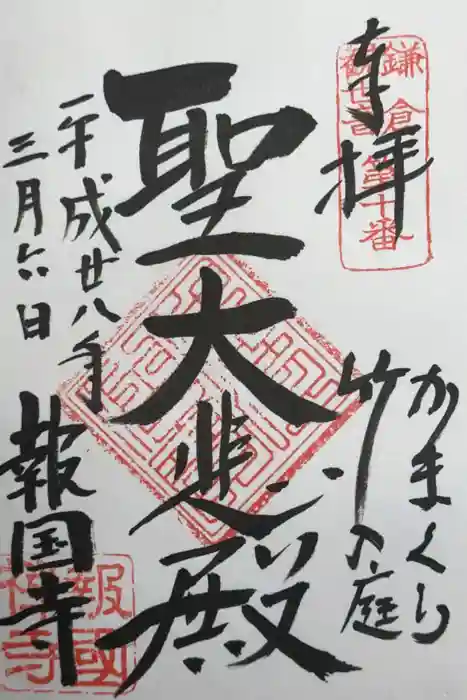 奉拝
鎌倉
観世音
第十番
かまくら
竹の庭
聖大悲殿
平成廿八年
三月六日
報国寺
報國
禅寺